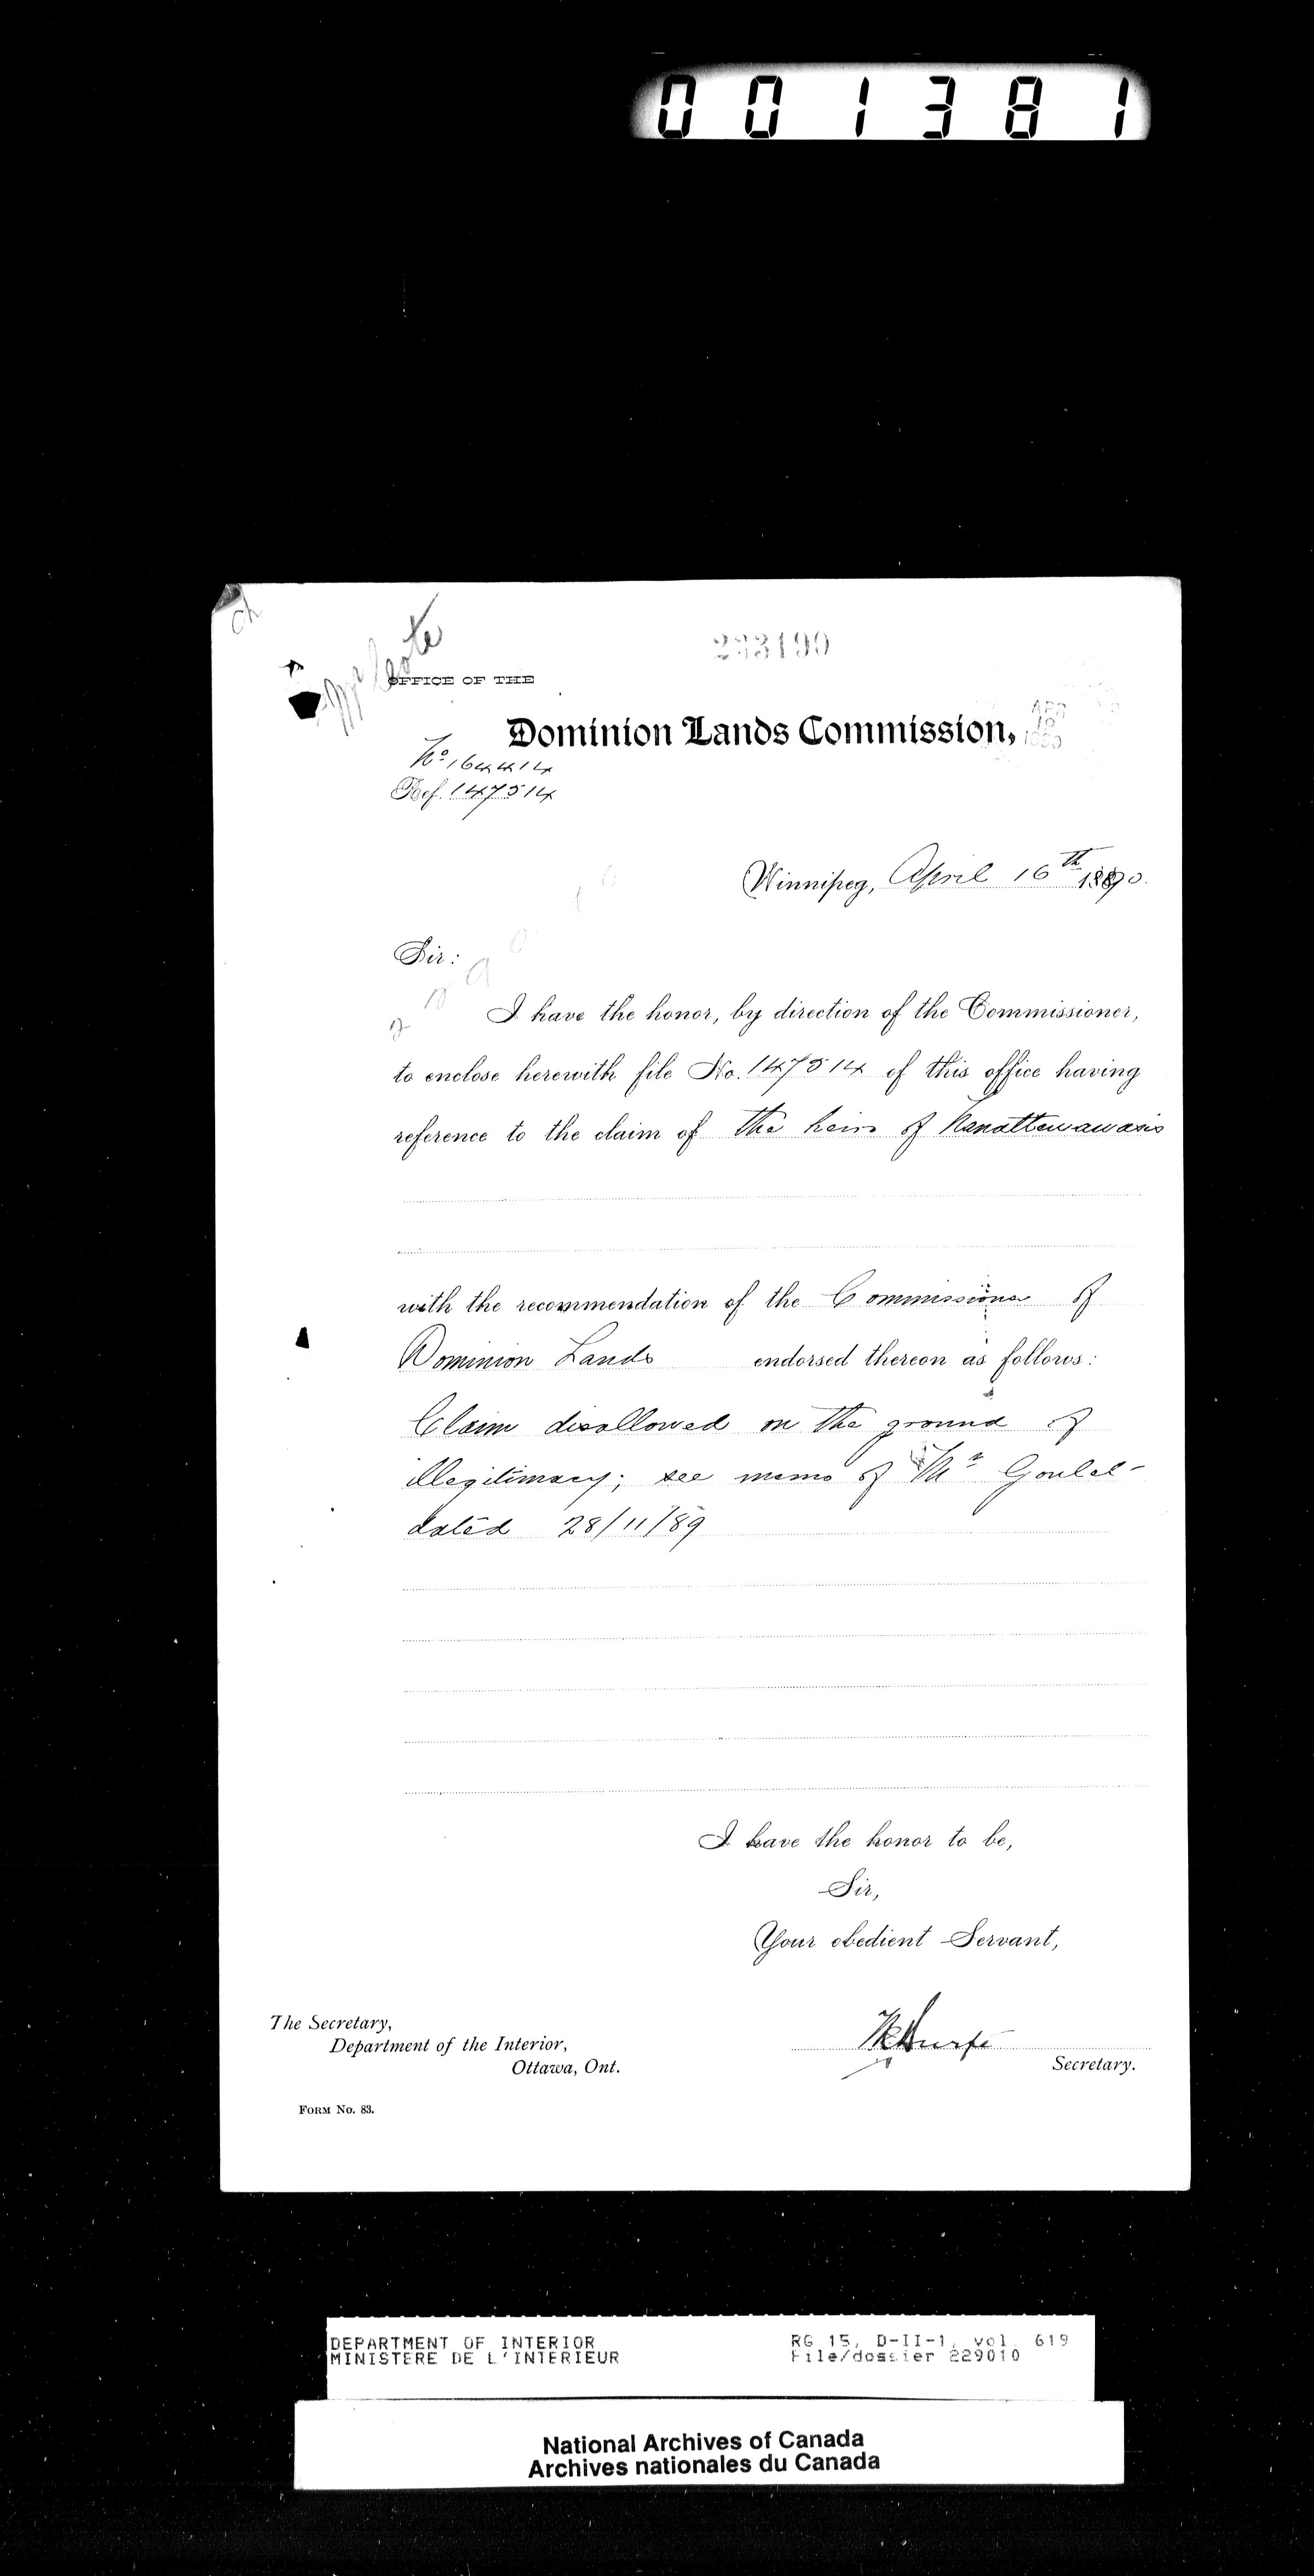 001381
Ch
Mr Cote
233190
OFFICE OF THE
Dominion Lands Commission,
APR
18
1890
No 164414
Ref. 147514
Winnipeg, April 16th 1890.
Sir:
229010
I have the honor, by direction of the Commissioner,
to enclose herewith file No. 147514 of this office having
reference to the claim of the heirs of
with the recommendation of the Commissioner of
Dominion Lands endorsed thereon as follows:
Claim disallowed on the ground of
illegitimacy; see memo of Mr Goulet
dated 28/11/89
I have the honor to be,
Sir,
Your obedient Servant,
The Secretary,
Department of the Interior,
Ottawa, Ont.
Secretary.
FORM No. 83.
DEPARTMENT OF INTERIOR
MINISTERE DE L'INTERIEUR
RG 15, D-II-1, vol. 619
File/dossier 229010
National Archives of Canada
Archives nationales du Canada